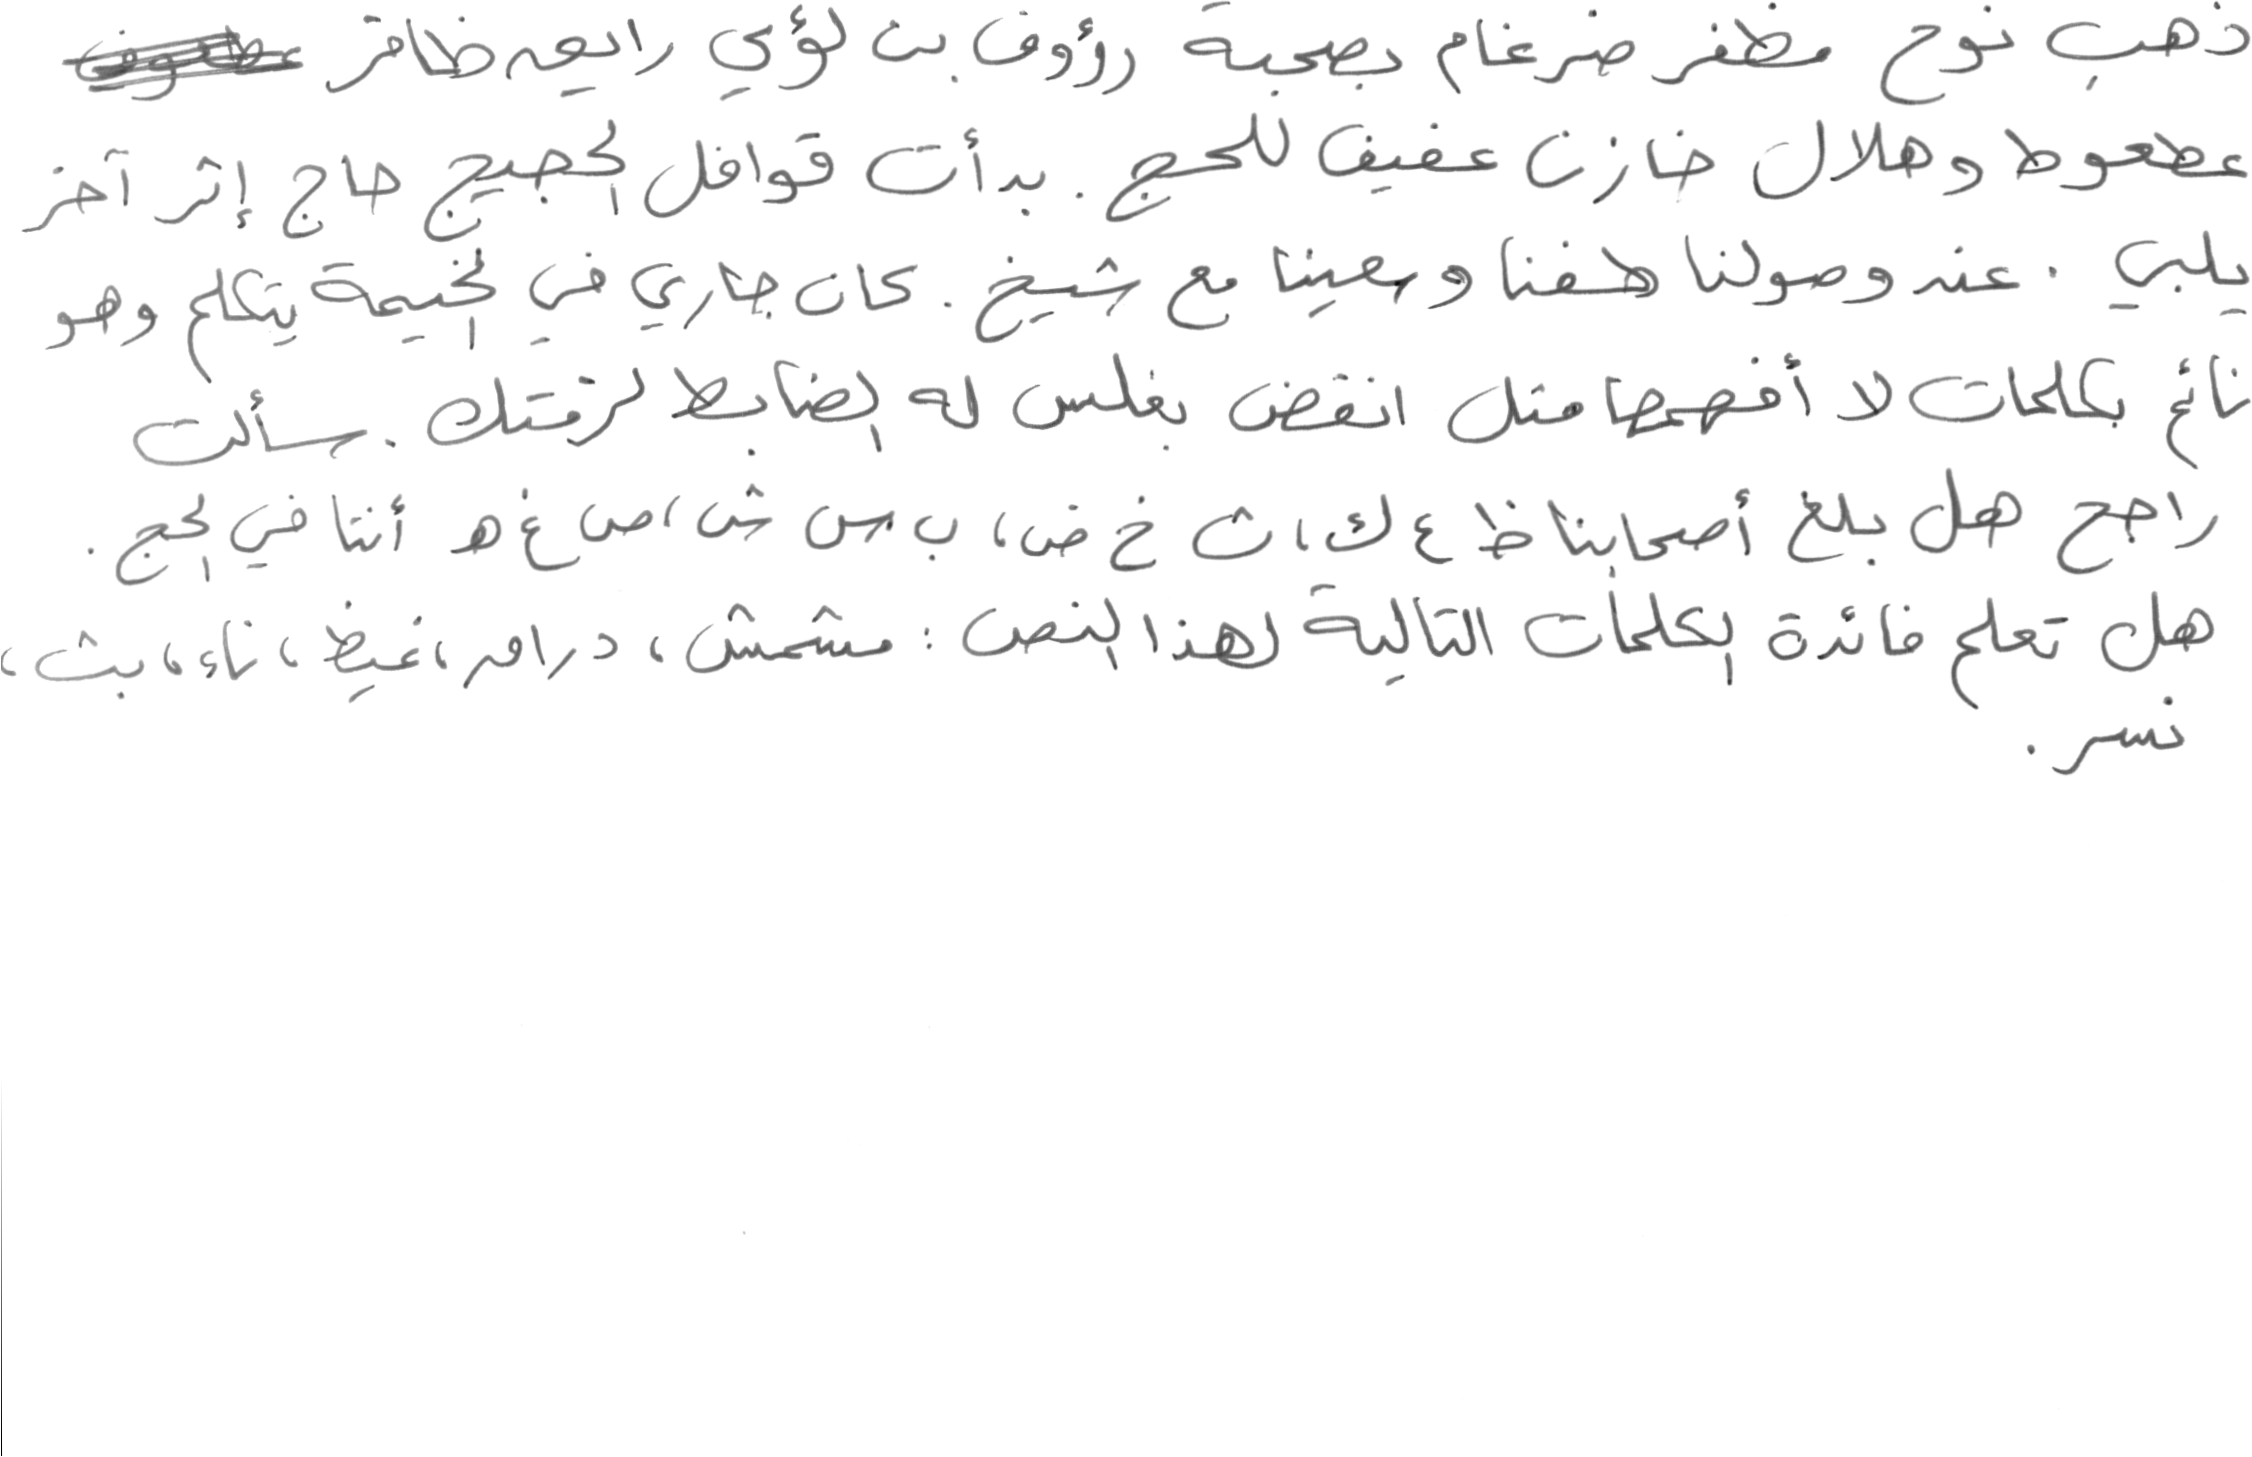 ذهب نوح مظفر ضرغام بصحبة رؤوف بن لؤي رايعه ظافر
عطعوط وهلال خازن عفيف للحج . بدأت قوافل الحجيج حاج إثر آخر
يلبي . عند وصولنا طفنا وسعينا مع شيخ . كان جاري في الخيمة يتكلم وهو
نائم بكلمات لا أفهمها مثل انقض بغلس له الضابط لزمتك . سألت
راجح هل بلغ أصحابنا ظ ع ك ، ث خ ض ، ب س ش ، ص غ ه أننا في الحج .
هل تعلم فائدة الكلمات التالية لهذا النص : مشمش ، دراهم ، غيظ ، ناء ، بث ،
نسر .